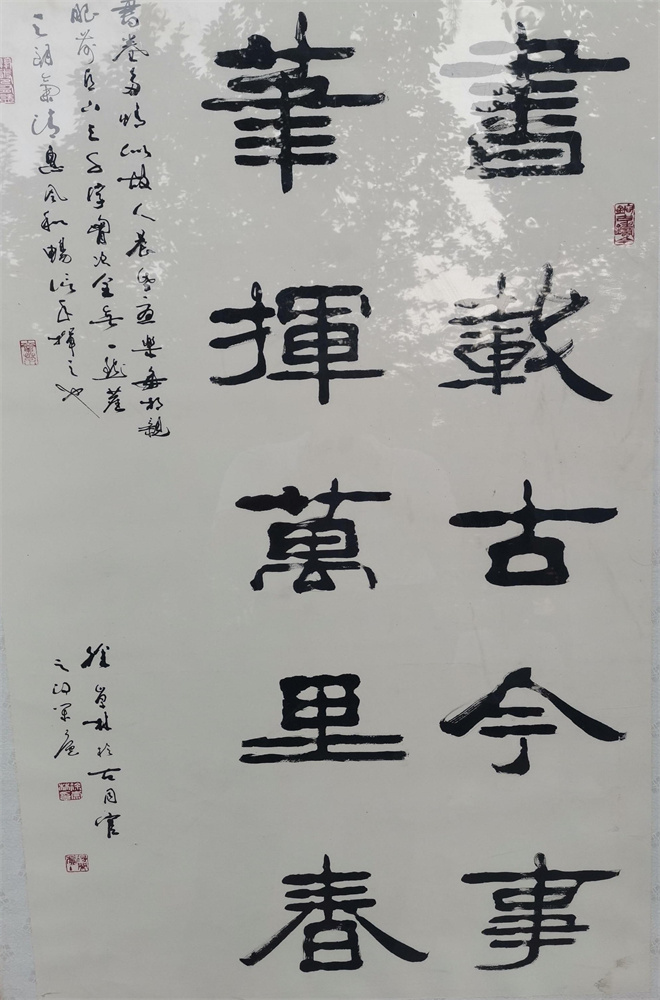 書載古今事
筆揮萬里春
書卷多情似故人晨昏憂樂每相親
眼前直下三千字胸次全無一點塵
氣清惠風和暢信手揮之也
林於古同官